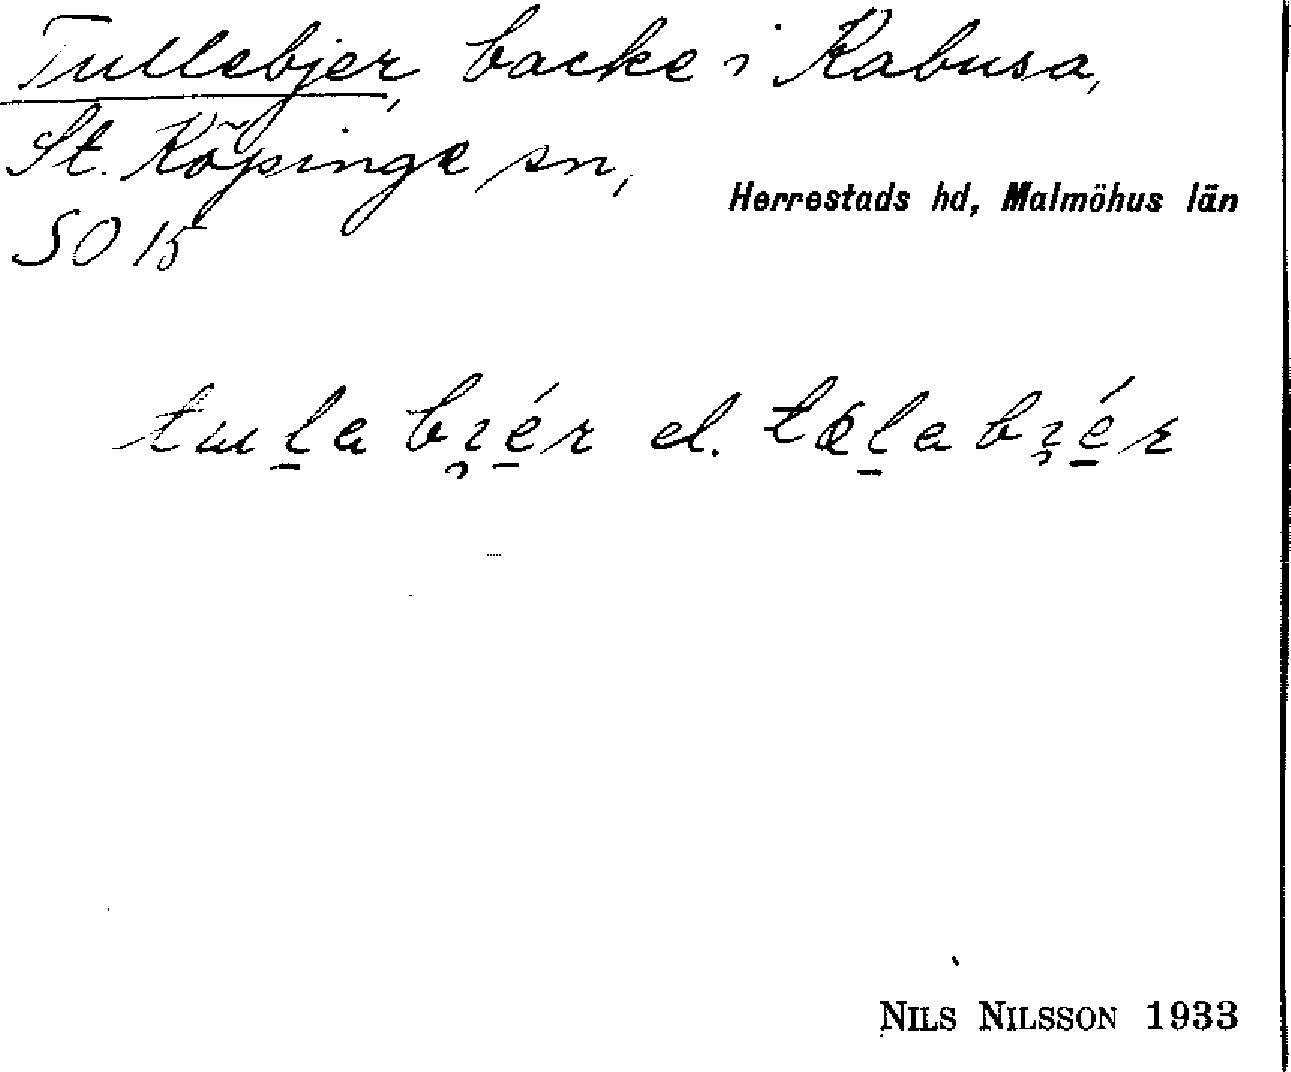 Tullebjer, backe i Kabusa,
St. Köpinge sn,
Herrestads hd, Malmöhus län
SO 15
tɯl̠a bɿ̡é̠r el. tœl̠a bɿ̡é̠r
NILS NILSSON 1933